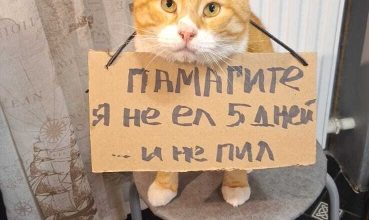 ПАМАГИТЕ
Я не ел 5 дней
... и не пил